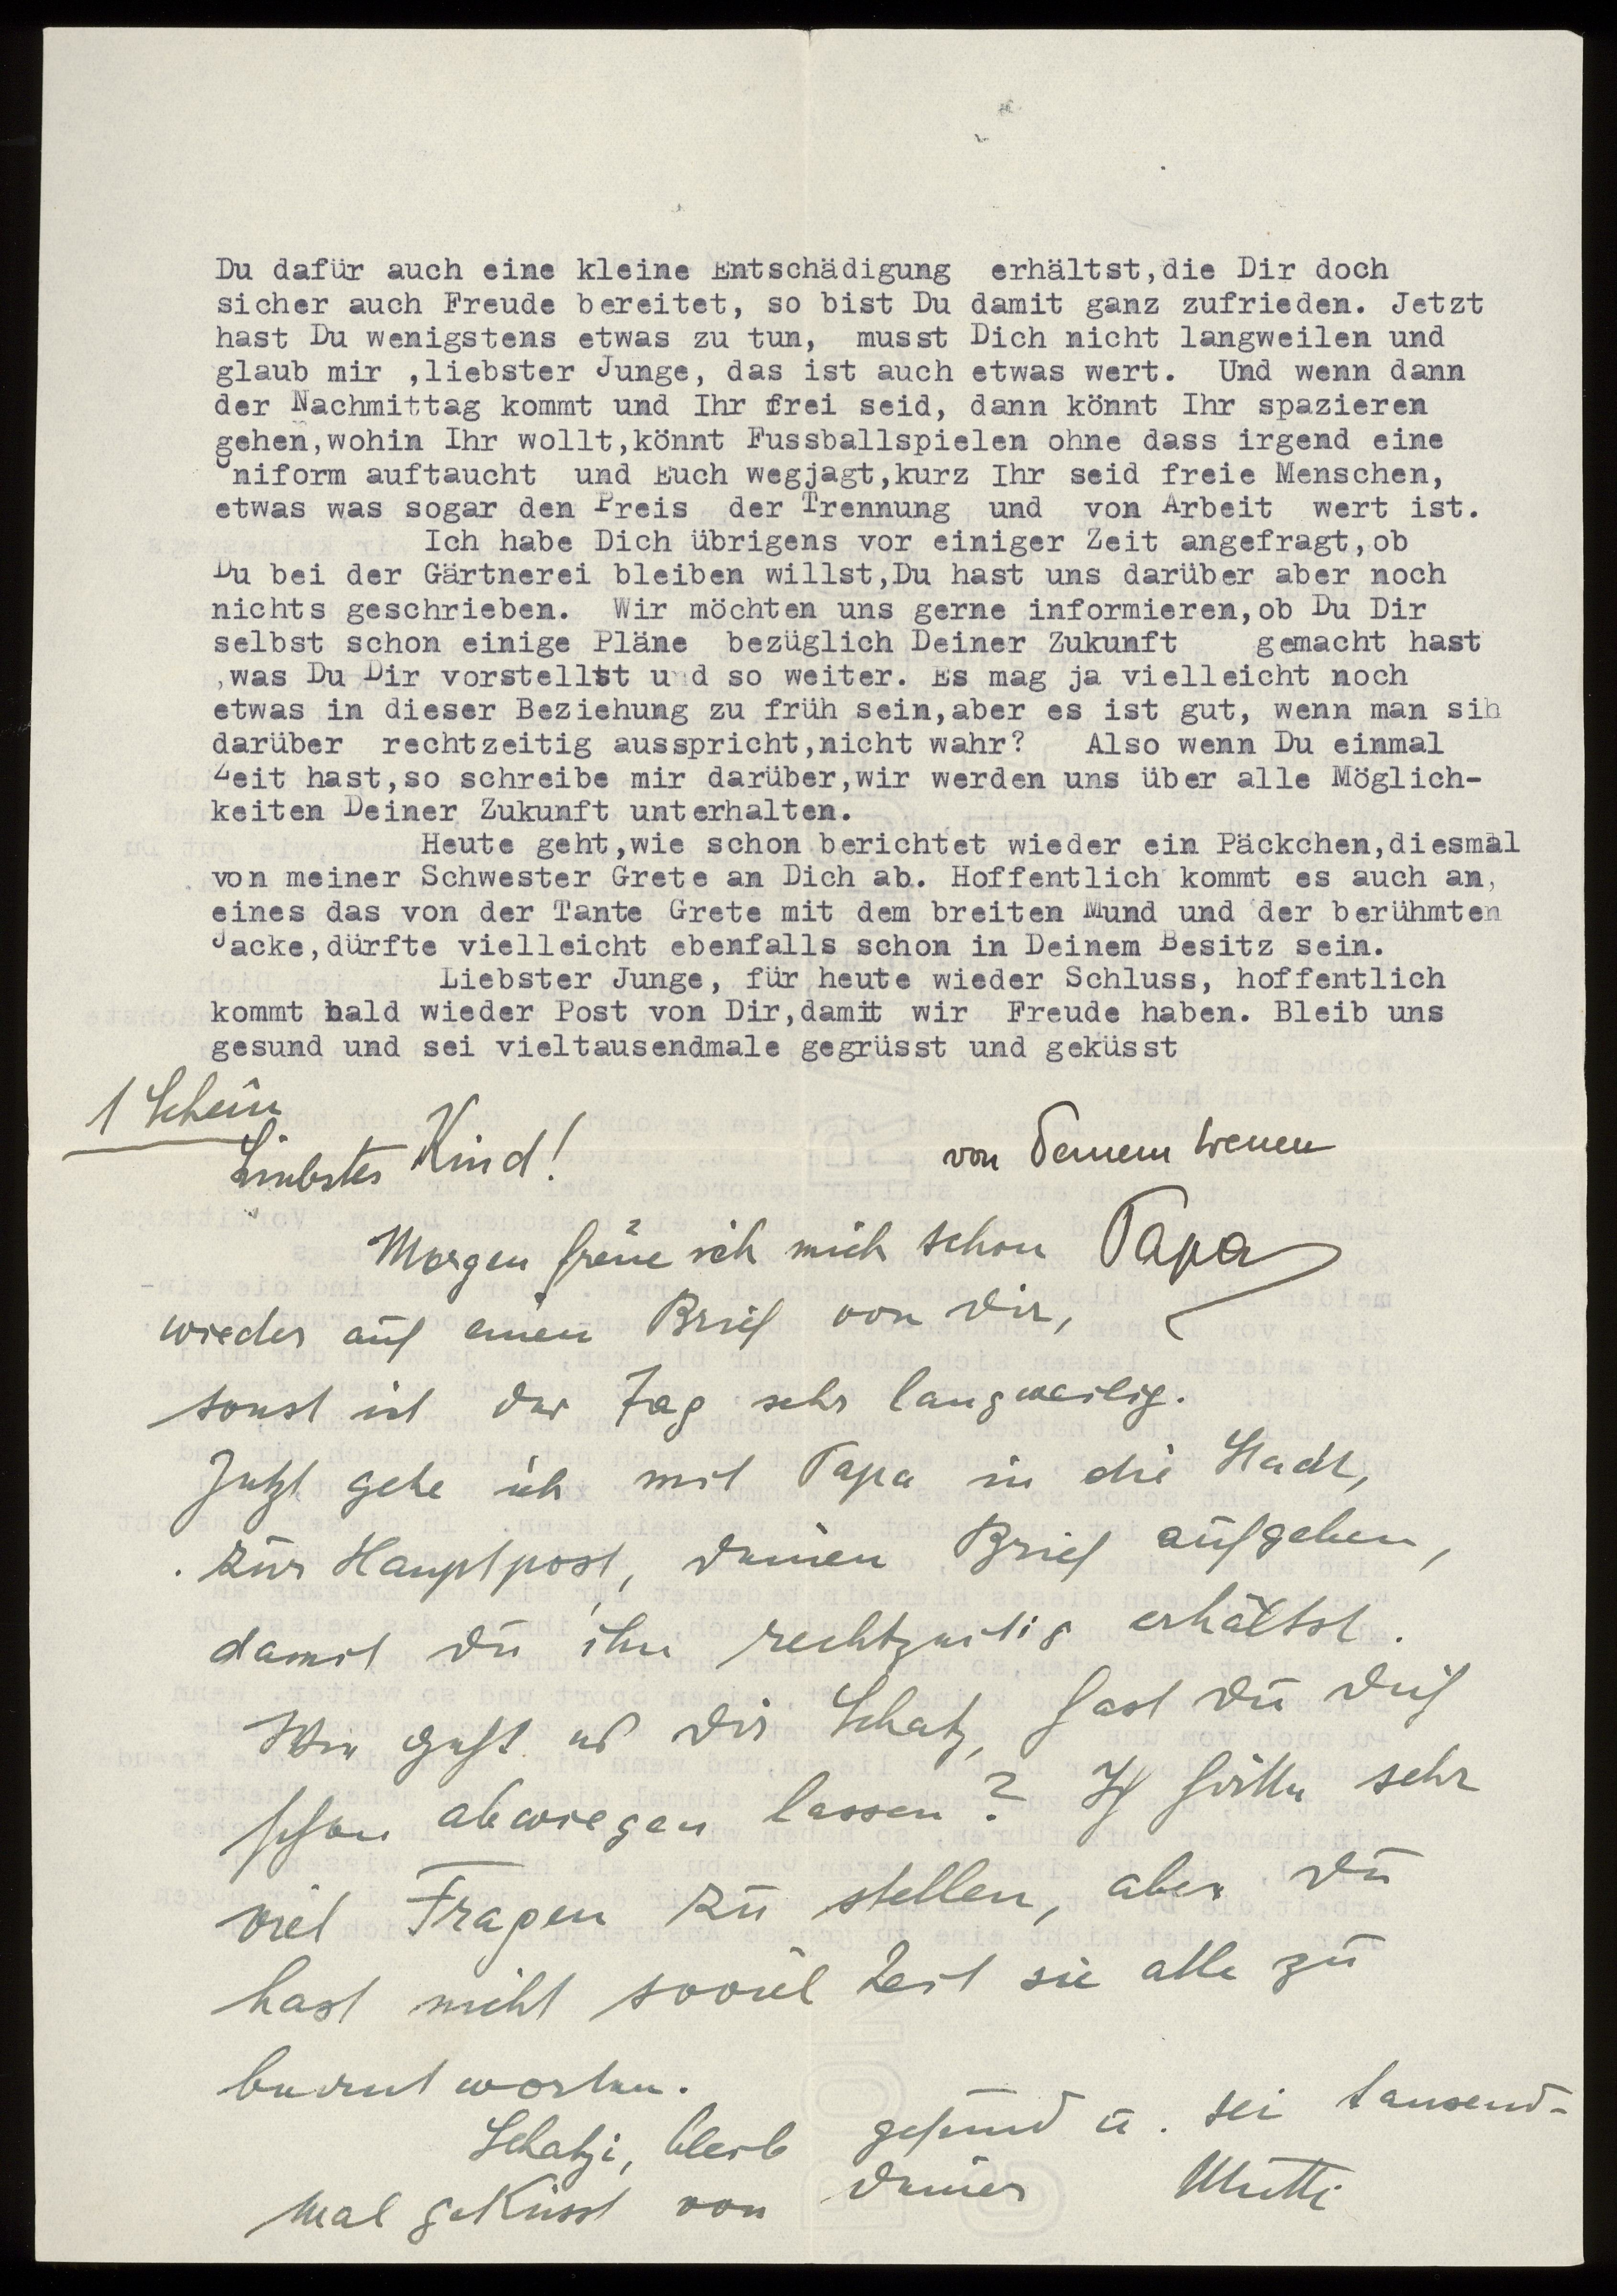 Du dafür auch eine kleine Entschädigung erhältst,die Dir doch
sicher auch Freude bereitet, so bist Du damit ganz zufrieden. Jetzt
hast Du wenigstens etwas zu tun, musst Dich nicht langweilen und
glaub mir ,liebster Junge, das ist auch etwas wert. Und wenn dann
der Nachmittag kommt und Ihr frei seid, dann könnt Ihr spazieren
gehen,wohin Ihr wollt,könnt Fussballspielen ohne dass irgend eine
Uniform auftaucht und Euch wegjagt,kurz Ihr seid freie Menschen,
etwas was sogar den Preis der Trennung und von Arbeit wert ist.
Ich habe Dich übrigens vor einiger Zeit angefragt,ob
Du bei der Gärtnerei bleiben willst,Du hast uns darüber aber noch
nichts geschrieben. Wir möchten uns gerne informieren,ob Du Dir
selbst schon einige Pläne bezüglich Deiner Zukunft gemacht hast
,was Du Dir vorstellst und so weiter. Es mag ja vielleicht noch
etwas in dieser Beziehung zu früh sein,aber es ist gut, wenn man sih
darüber rechtzeitig ausspricht,nicht wahr? Also wenn Du einmal
Zeit hast,so schreibe mir darüber,wir werden uns über alle Möglich-
keiten Deiner Zukunft unterhalten.
Heute geht,wie schon berichtet wieder ein Päckchen,diesmal
von meiner Schwester Grete an Dich ab. Hoffentlich kommt es auch an,
eines das von der Tante Grete mit dem breiten Mund und der berühmten
Jacke,dürfte vielleicht ebenfalls schon in Deinem Besitz sein.
Liebster Junge, für heute wieder Schluss, hoffentlich
kommt bald wieder Post von Dir,damit wir Freude haben. Bleib uns
gesund und sei vieltausendmale gegrüsst und geküsst
1 Schein
von Deinem treuen
Liebstes Kind!
Papa
Morgen freue ich mich schon
wieder auf einen Brief von Dir,
sonst ist der Tag sehr langweilig.
Jetzt gehe ich mit Papa in die Stadt,
zur Hauptpost, Deinen Brief aufgeben,
damit Du ihn rechtzeitig erhältst.
Wie geht es Dir Schatz, hast Du Dich
schon abwiegen lassen? Ich hätte sehr
viel Fragen zu stellen, aber Du
hast nicht soviel Zeit sie alle zu
beantworten.
Schatzi, bleib gesund u. sei tausend-
mal geküsst von Deiner Mutti